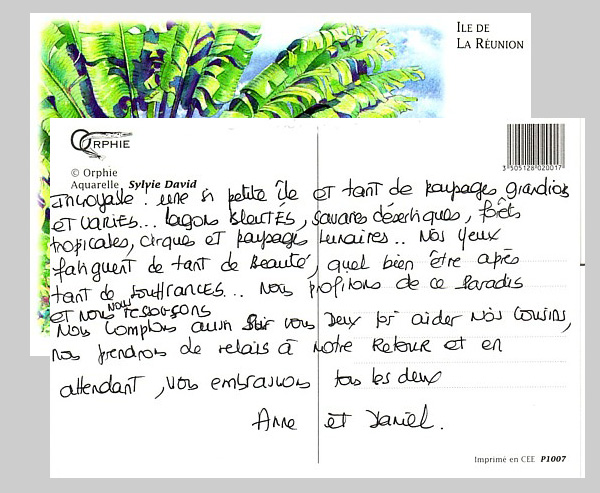 ILE DE
LA RÉUNION
ORPHIE
3 505128 020017
© Orphie
Aquarelle Sylvie David
Incroyable : une si petite île et tant de paysages grandios
et variés... lagons bleutés, savanes désertiques, forêts
tropicales, cirque et paysages lunaires.. Nos yeux
fatiguent de tant de beauté, quel bien être après
tant de souffrances... Nous profitons de ce Paradis
et nous nous ressouçons
Nous comptons aussi sur vous deux pr aider nos cousins,
nos prendrons de relais à notre retour et en
attendant, vos embrassons tos les deux
Anne et Daniel.
Imprimé en CEE P1007